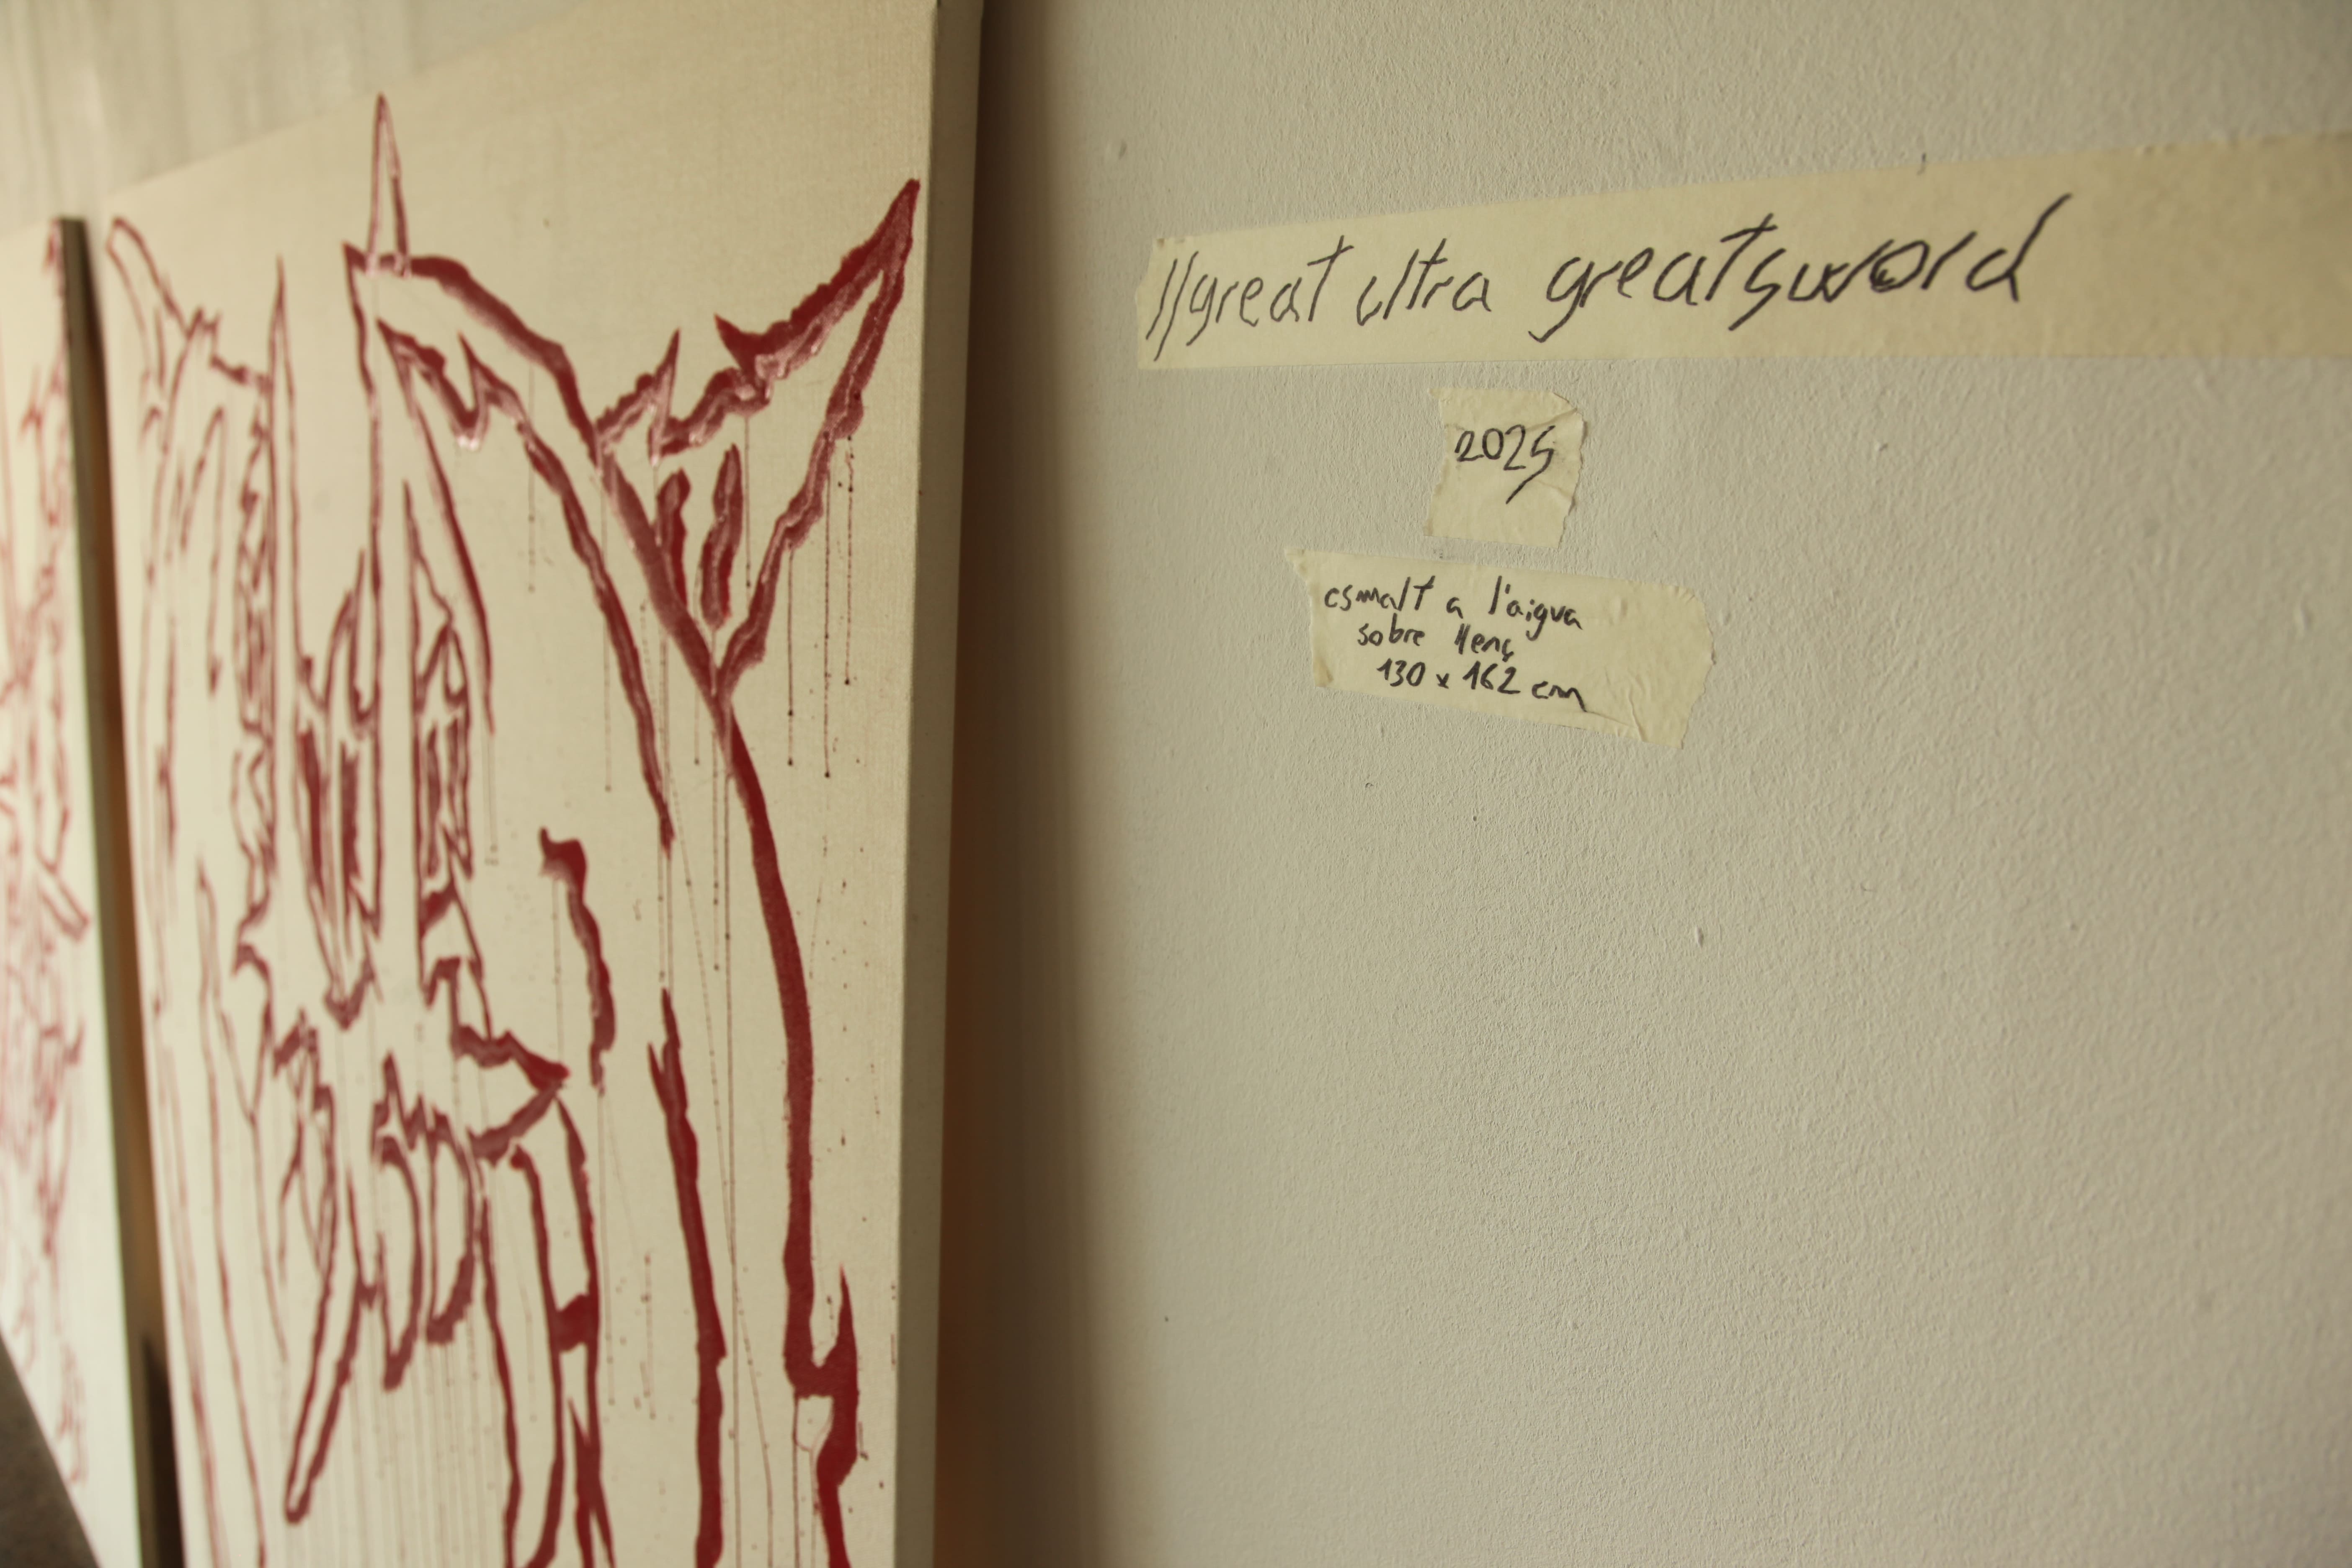 //great ultra greatsword
2025
esmalt a l'aigua
sobre llenç
130 x 162 cm